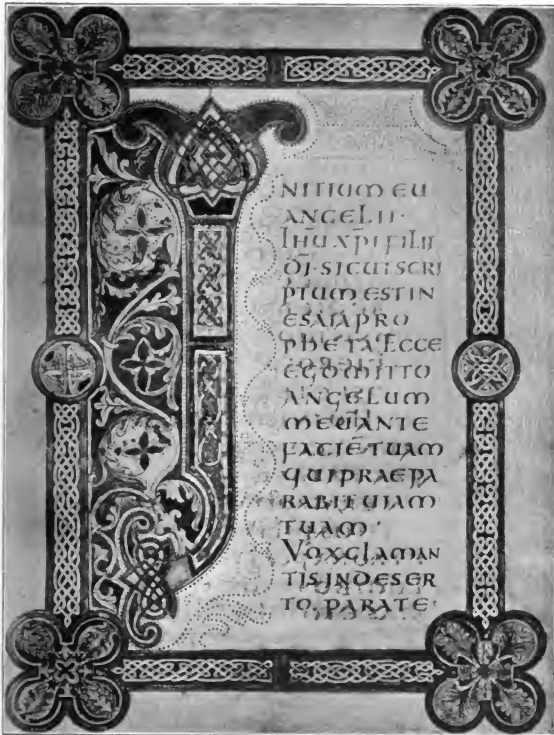 INITIUM EU
ANGELII·
IHŪ XPĪ FILII
DĪ· SICUT SCRI
PTUM EST IN
ESAIA PRO
PHETA· ECCE
EGO MITTO
ANGELUM
MEŪ ANTE
FACIĒ TUAM
QUI PRAEPA
RABIT UIAM
TUAM·
VOX CLAMAN
TIS IN DESER
TO, PARATE·